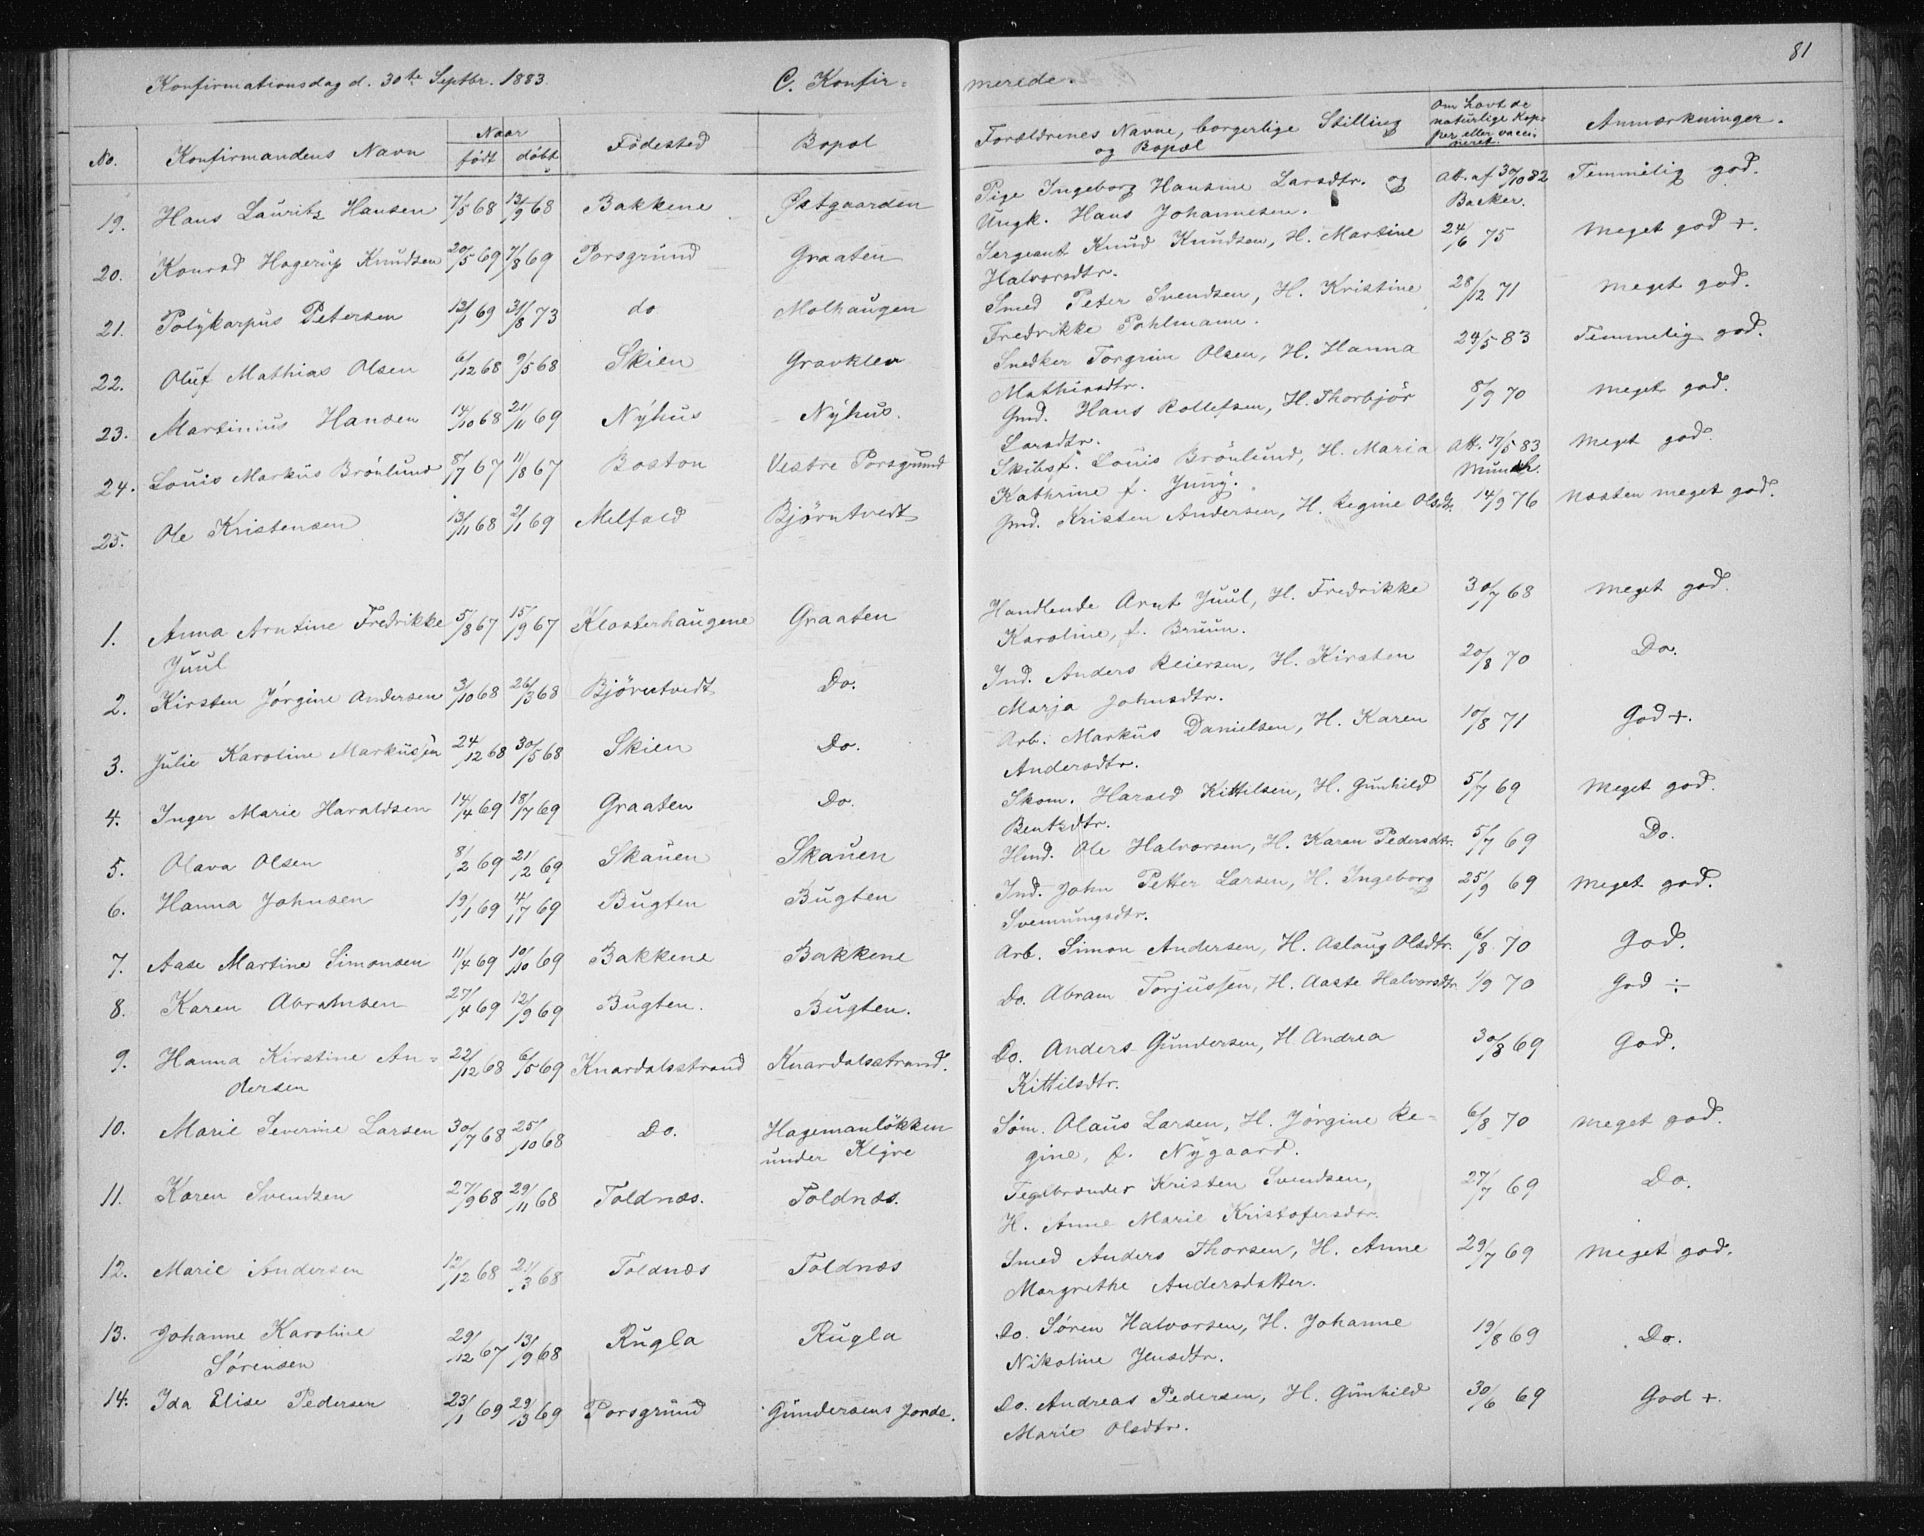 81
Konfirmationsdag d. 30te Septbr. 1883. C. Konfir-
merede.
No. Konfirmandens Navn Naar født døbt Födested Bopæl
Forældrenes Navne, borgerlige Stilling og Bopæl Om havt de naturlige Kopper eller vaccineret. Anmærkninger.
19. Hans Lauritz Hansen 7/5 68 13/9 68 Bakkene Østgaarden
Pige Ingeborg Hansine Larsdtr. og Att. af 30/10 82 Temmelig god.
Ungk. Hans Johannesen. Backer.
20. Konrad Hagerup Knudsen 20/5 69 7/8 69 Porsgrund Graaten
Sergeant Knud Knudsen, H. Martine 24/6 75 Meget god +.
Halvorsdtr.
21. Polykarpus Petersen 13/1 69 31/8 73 do Molhaugen
Smed Peter Svendsen, H. Kristine 28/12 71 Meget god.
Fredrikke Pohlmann.
22. Oluf Mathias Olsen 6/12 68 9/5 68 Skien Gravklev
Snedker Torgrim Olsen, H. Hanna 24/5 83 Temmelig god.
Mathisdtr.
23. Martinius Hansen 14/10 68 21/11 69 Nyhus Nyhus.
Gmd. Hans Rollefsen, H. Thorbjör 8/9 70 Meget god.
Larsdtr.
24. Louis Markus Brönlund 8/7 67 11/8 67 Boston Vestre Porsgrund
Skibsf. Louis Brönlund, H. Maria Att. 17/5 83 Meget god.
Kathrine f. Jung. Munch.
25. Ole Kristensen 13/11 68 2/1 69 Melfald Björntvedt
Gmd. Kristen Andersen, H. Regine Olsdtr. 14/9 76 Næsten meget god.
1. Anna Arntine Fredrikke 5/8 67 15/9 67 Klosterhaugene Graaten
Juul
Handlende Arnt Juul, H. Fredrikke 30/7 68 Meget god
Karoline, f. Bruun.
2. Kirsten Jørgine Andersen 3/10 68 26/3 68 Bjørntvedt Do.
Ind. Anders Reiersen, H. Kirsten 20/8 70 Do.
Marja Johnsdtr.
3. Julie Karoline Markussen 24/12 68 30/5 68 Skien Do.
Arb. Markus Danielsen, H. Karen 10/8 71 God +.
Andersdtr.
4. Inger Marie Haraldsen 14/4 69 18/7 69 Graaten Do.
Skom. Harald Kittilsen, H. Gunhild 5/7 69 Meget god.
Bentsdtr.
5. Olava Olsen 8/2 69 21/2 69 Skauen Skauen
Hmd. Ole Halvorsen, H. Karen Pedersdtr. 5/7 69 Do.
6. Hanna Johnsen 19/1 69 4/7 69 Bugten Bugten
Ind. John Petter Larsen, H. Ingeborg 25/9 69 Meget god.
Svenungsdtr.
7. Aase Martine Simonsen 11/4 69 10/10 69 Bakkene Bakkene
Arb. Simon Andersen, H. Aslaug Olsdtr. 6/8 70 God.
8. Karen Abramsen 27/4 69 12/9 69 Bugten. Bugten.
Do. Abram Torjussen, H. Aaste Halvorsdtr. 1/9 70 God ÷
9. Hanna Kirstine An- 22/12 68 6/5 69 Knardalsstrand Knardalsstrand.
dersen
Do. Anders Gundersen, H. Andrea 30/8 69 God.
Kittilsdtr.
10. Marie Severine Larsen 30/7 68 25/10 68 Do. Hagemanlökken
under Klyve
Søm. Olaus Larsen, H. Jørgine Re- 6/8 70 Meget god.
gine, f. Nygaard.
11. Karen Svendsen 27/9 68 29/11 68 Toldnæs. Toldnæs.
Teglbrænder Kristen Svendsen, 27/7 69 Do.
H. Anne Marie Kristofersdtr.
12. Marie Andersen 12/12 68 21/3 68 Toldnæs Toldnæs
Smed Anders Thorsen, H. Anne 29/7 69 Meget god.
Margrethe Andersdatter.
13. Johanne Karoline 29/12 67 13/9 68 Rugla Rugla
Sørensen
Do. Søren Halvorsen, H. Johanne 19/8 69 Do.
Nikoline Jensdtr.
14. Ida Elise Pedersen 23/1 69 29/3 69 Porsgrund Gundersens Jorde.
Do. Andreas Pedersen, H. Gunhild 30/6 69 God +.
Marie Olsdtr.